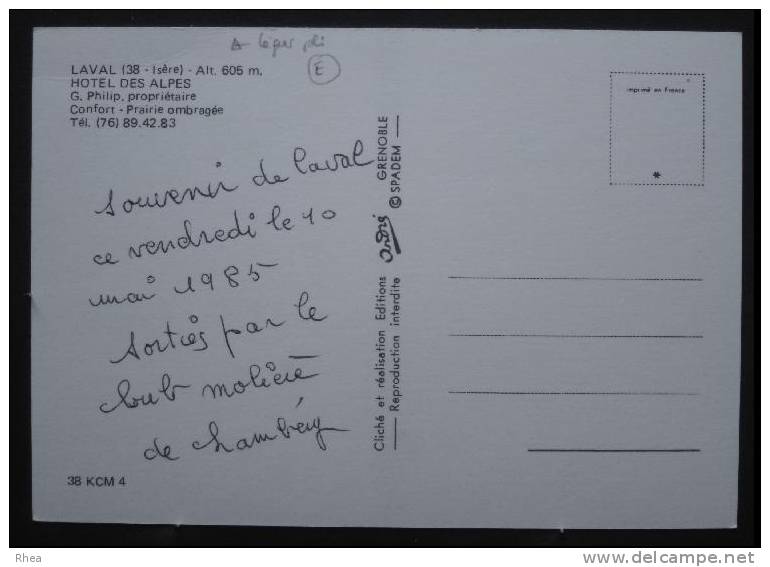 A léger pli
E
LAVAL (38 - Isère) - Alt. 605 m.
HOTEL DES ALPES
G. Philip, propriétaire
Confort - Prairie ombragée
Tél. (76) 89.42.83
souvenir de laval
ce vendredi le 10
mai 1985
sorties par le
cloub molière
de chambéry
38 KCM 4
Cliché et réalisation Editions André GRENOBLE
Reproduction interdite © SPADEM
imprimé en France
*
Rhea
www.delcampe.net